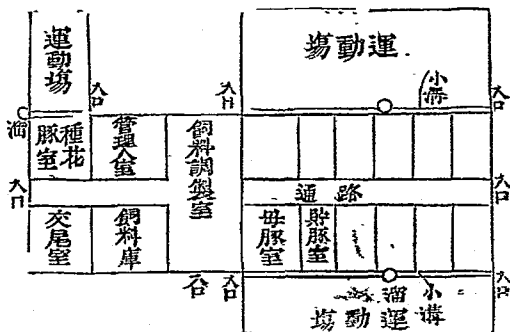 運動場
運動場
小溝
入口
入口
入口
溜
種花豚室
管理人室
飼料調製室
入口
通路
入口
交尾室
飼料庫
母豚室
貯豚室
入口
入口
溜
小溝
運動場